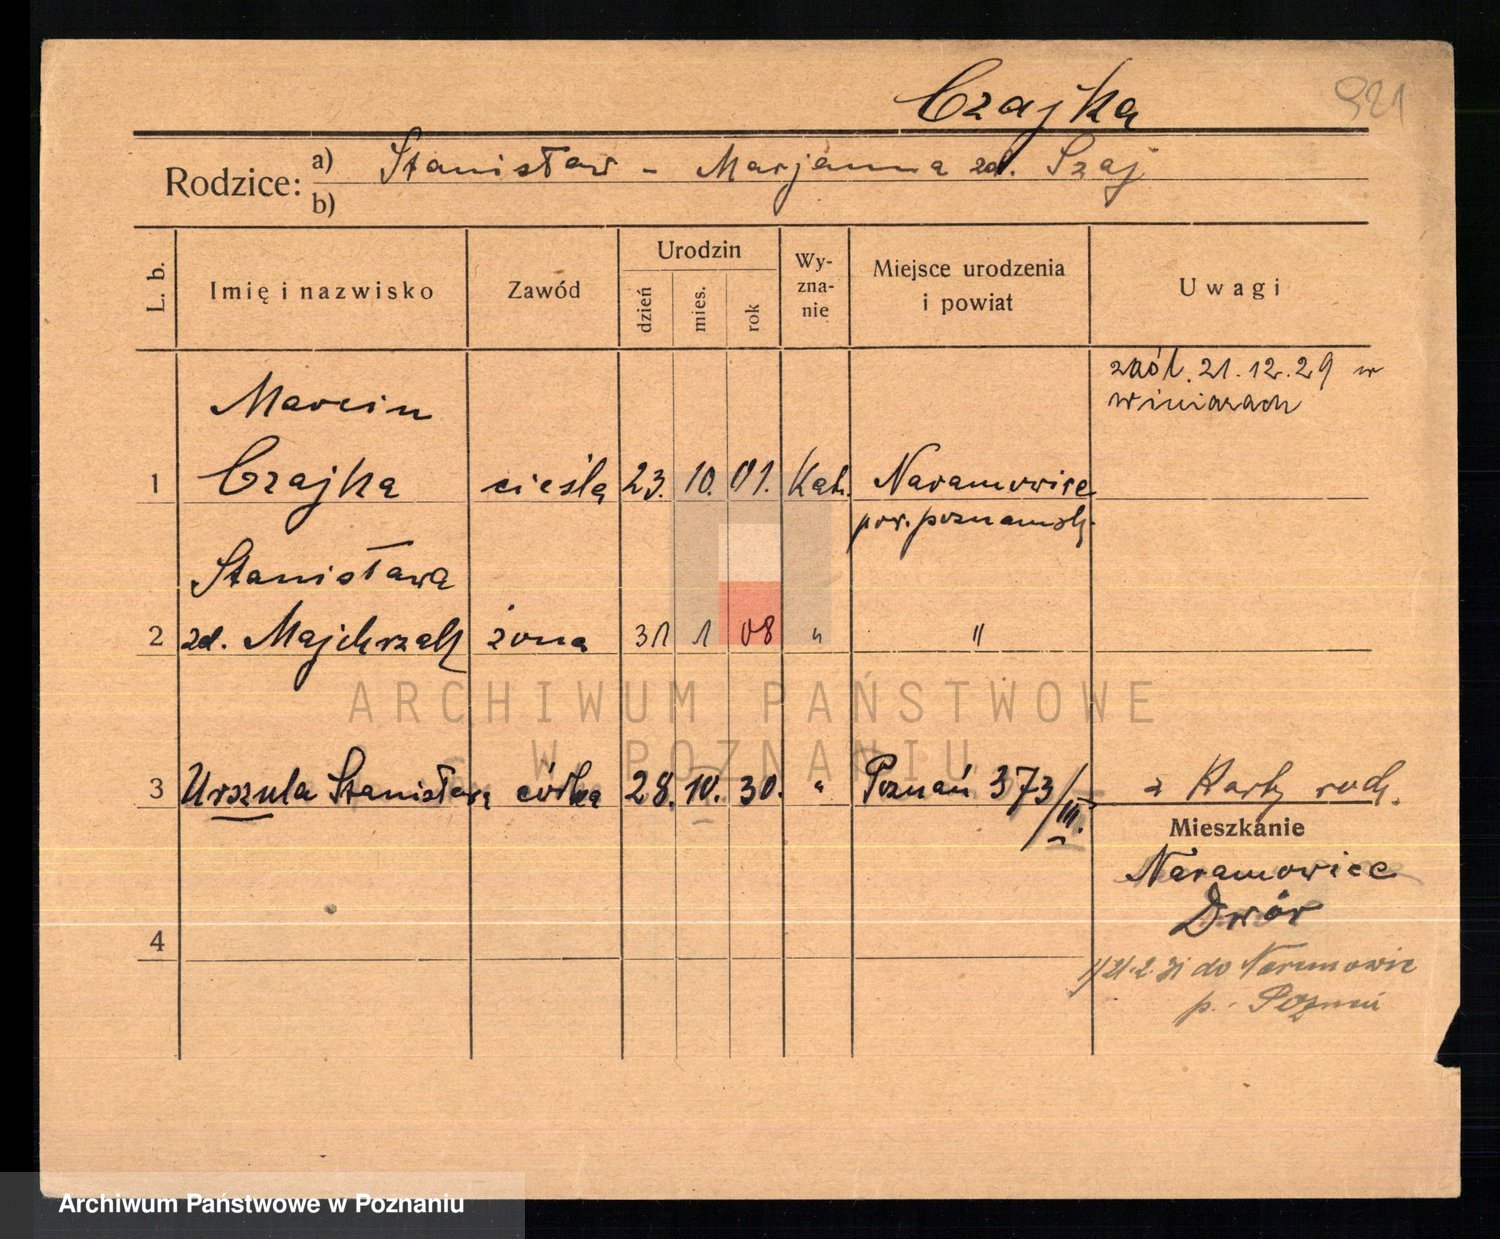 Czajka
921
Rodzice: a) Stanisław - Marjanna zd. Szaj
b)
L. b.
Imię i nazwisko
Zawód
Urodzin
dzień
mies.
rok
Wy-
zna-
nie
Miejsce urodzenia
i powiat
Uwagi
21.12.29 w
Winiarach
Marcin
1 Czajka cieśla 23. 10. 01. Kat. Naramowice
pow. poznański
Stanisława
2 zd. Majchrzak żona 31 1 08 " "
3 Urszula Stanisława córka 28. 10. 30. " Poznań 373/III. z Karty rodz.
Mieszkanie
Naramowice
Dwór
4
do Naramowic
p. Poznań
ARCHIWUM PAŃSTWOWE
W POZNANIU
Archiwum Państwowe w Poznaniu